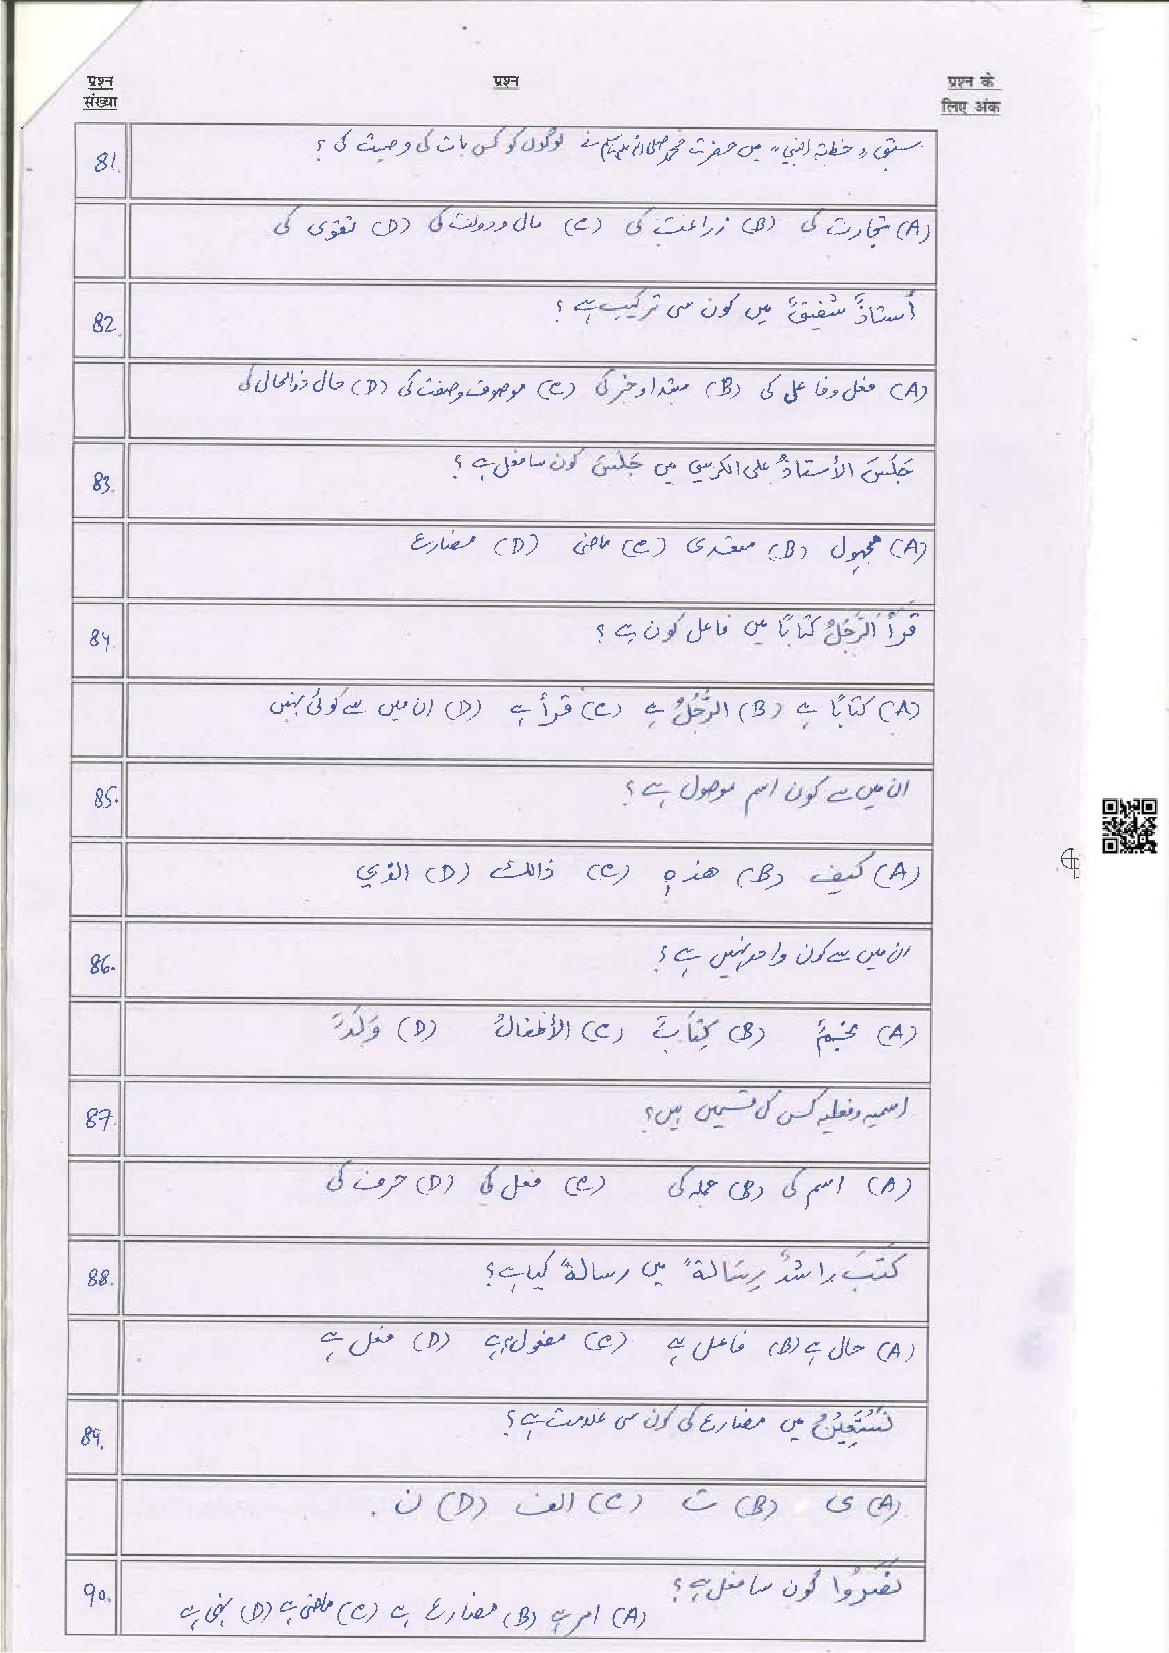 प्रश्न संख्या
प्रश्न
प्रश्न के लिए अंक
81. سبق "خطبۃ النبی" میں حضرت محمد صلی اللہ علیہ وسلم نے لوگوں کو کس بات کی وصیت کی؟
(A) تجارت کی (B) زراعت کی (C) مال و دولت کی (D) تقوی کی
82. أستاذٌ شفیقٌ میں کون سی ترکیب ہے؟
(A) فعل و فاعل کی (B) مبتدا و خبر کی (C) موصوف و صفت کی (D) حال ذوالحال کی
83. جَلَسَ الأستاذُ علی الکرسي میں جَلَسَ کون سا فعل ہے؟
(A) مجہول (B) متعدی (C) ماضی (D) مضارع
84. قَرَأَ الرَّجُلُ کتابًا میں فاعل کون ہے؟
(A) کتابًا ہے (B) الرَّجُلُ ہے (C) قرأ ہے (D) ان میں سے کوئی نہیں
85. ان میں سے کون اسم موصول ہے؟
(A) کیف (B) ھذہ (C) ذالک (D) الذي
86. ان میں سے کون واحد نہیں ہے؟
(A) نجمٌ (B) کِتَابٌ (C) الأطفالُ (D) وَلَدٌ
87. اسمیہ و فعلیہ کس کی قسمیں ہیں؟
(A) اسم کی (B) جملہ کی (C) فعل کی (D) حرف کی
88. کَتَبَ راشدٌ رِسَالةً میں رسالةً کیا ہے؟
(A) حال ہے (B) فاعل ہے (C) مفعول بہ ہے (D) فعل ہے
89. نَسْتَعِیْنُ میں مضارع کی کون سی علامت ہے؟
(A) ی (B) ت (C) الف (D) ن
90. کون سا فعل ہے؟
(A) امر ہے (B) مضارع ہے (C) ماضی ہے (D) نہی ہے